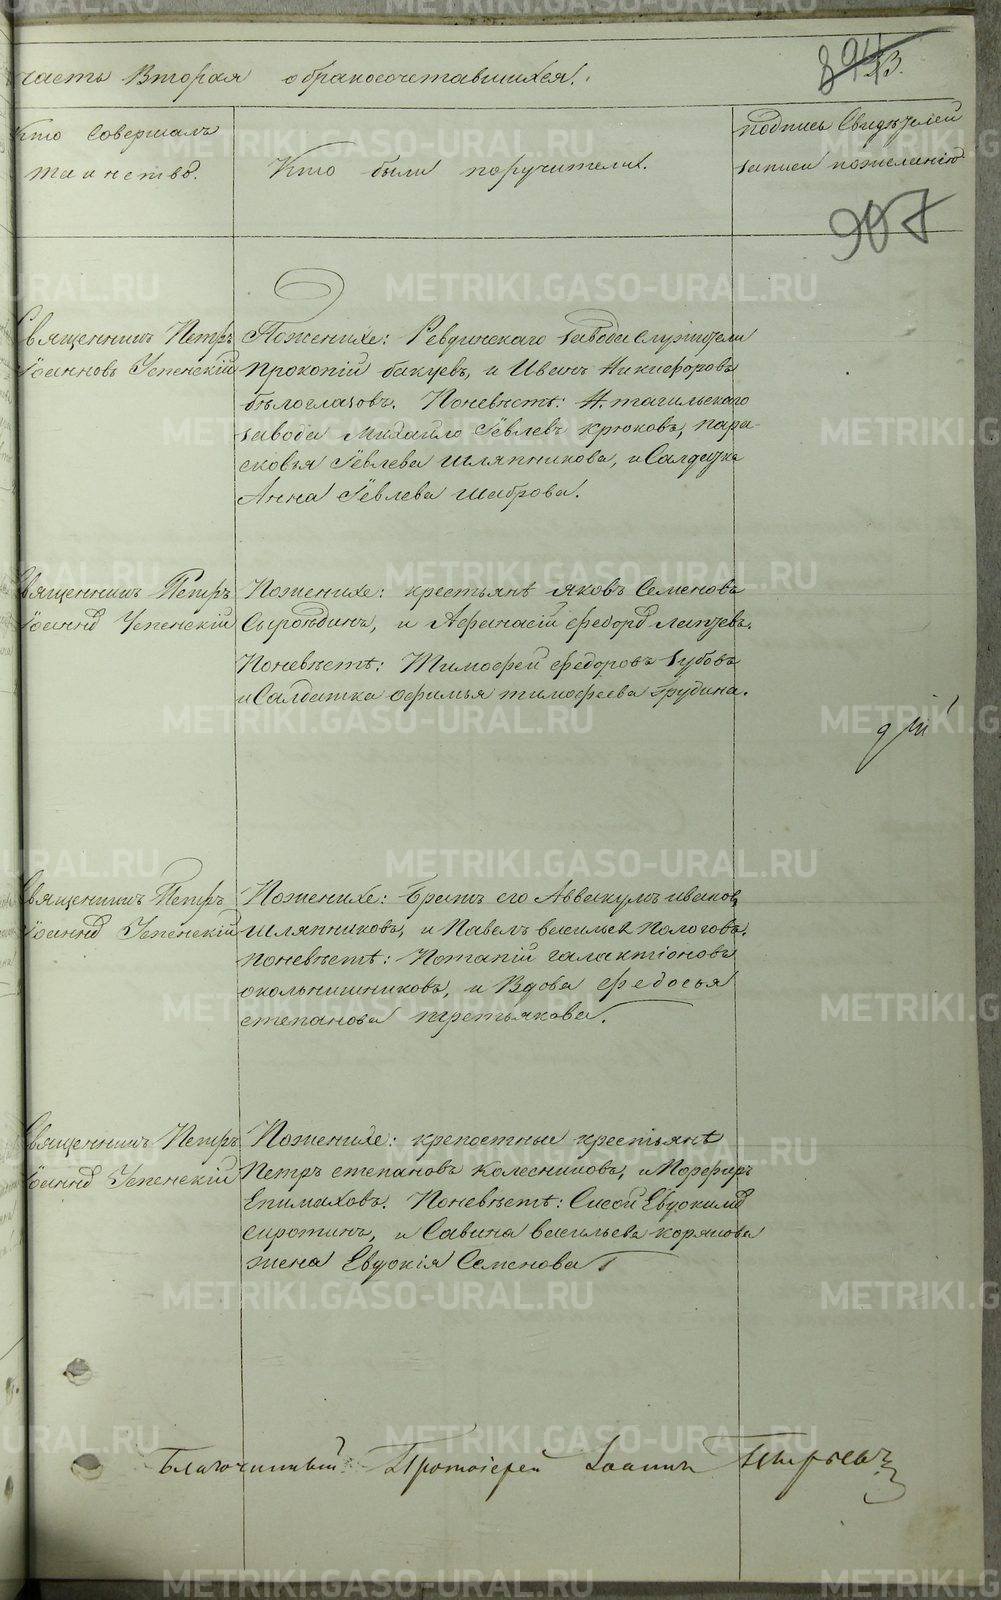 часть Вторая о бракосочетавшихся.
Кто Совершалъ
таинство.
Кто были поручители.
подпись Свидѣтелей
записи пожеланію
907
Священникъ Петръ
Іоанновъ Успенскій
Поженихе: Ревдинскаго завода служители
Прокопій бакуевъ, и Иванъ Никифоровъ
бѣлоглазовъ. Поневѣстѣ: Н. тагильскаго
завода Михайло Іевлевъ крюковъ, пара-
сковья Іевлева шляпникова, и Салдатка
Анна Іевлева шаброва.
Священникъ Петръ
Іоанновъ Успенскій
Поженихе: крестьянѣ яковъ Семеновъ
и Афанасій федоровъ лаптевъ.
Поневѣстѣ: Тимофей федоровъ зубовъ
и Салдатка офимья тимофеева Грудина.
Священникъ Петръ
Іоанновъ Успенскій
Поженихе: братъ его Аввакумъ иванов
шляпниковъ, и Павелъ васильев Пологовъ.
поневѣстѣ: Потапій галактіоновъ
окольнишниковъ, и Вдова федосья
степанова третьякова.
Священникъ Петръ
Іоанновъ Успенскій
Поженихе: крепостные крестьянѣ
Петръ степановъ колесниковъ, и Порфиръ
Епимаховъ. Поневѣстѣ: Сисой Евдокимовъ
сиротинъ, и Савина васильева корякова
жена Евдокія Семенова
Благочинный Протоіерей Іоаннъ
METRIKI.GASO-URAL.RU